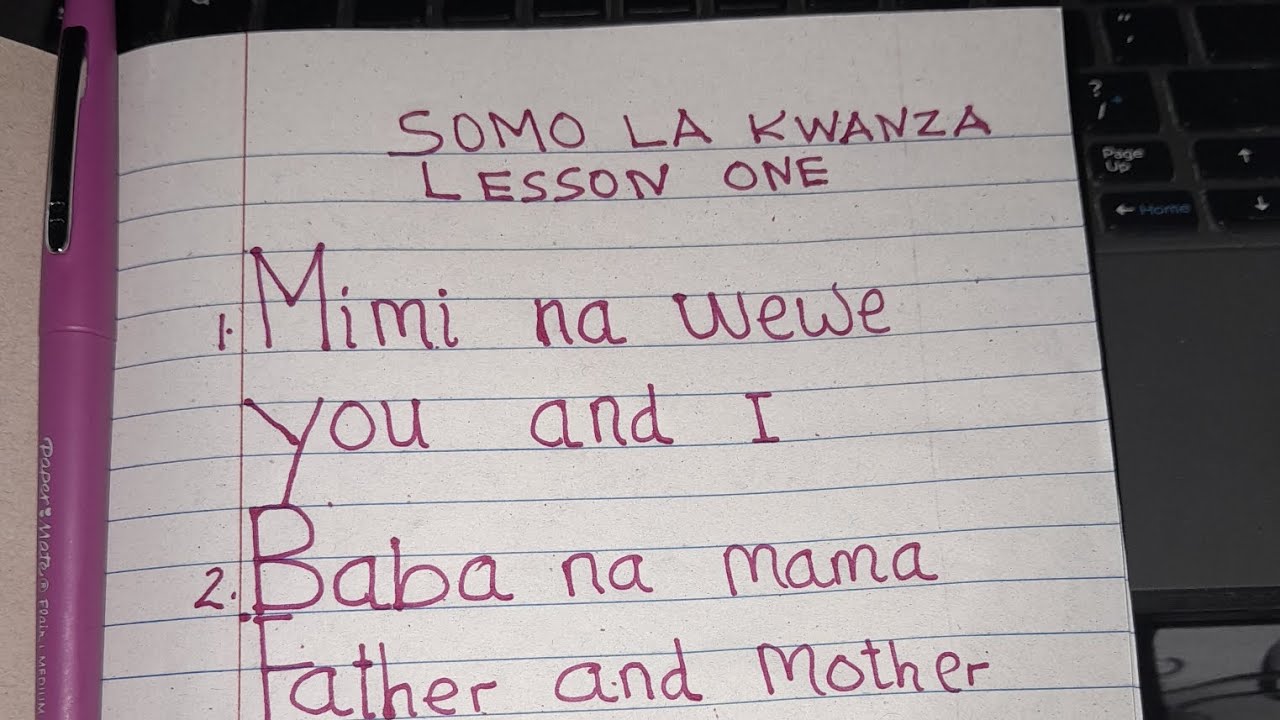 SOMO LA KWANZA
LESSON ONE
1. Mimi na wewe
you and I
2. Baba na mama
Father and mother
Paper Mate® Flair MEDIUM
? /
Page Up
Home